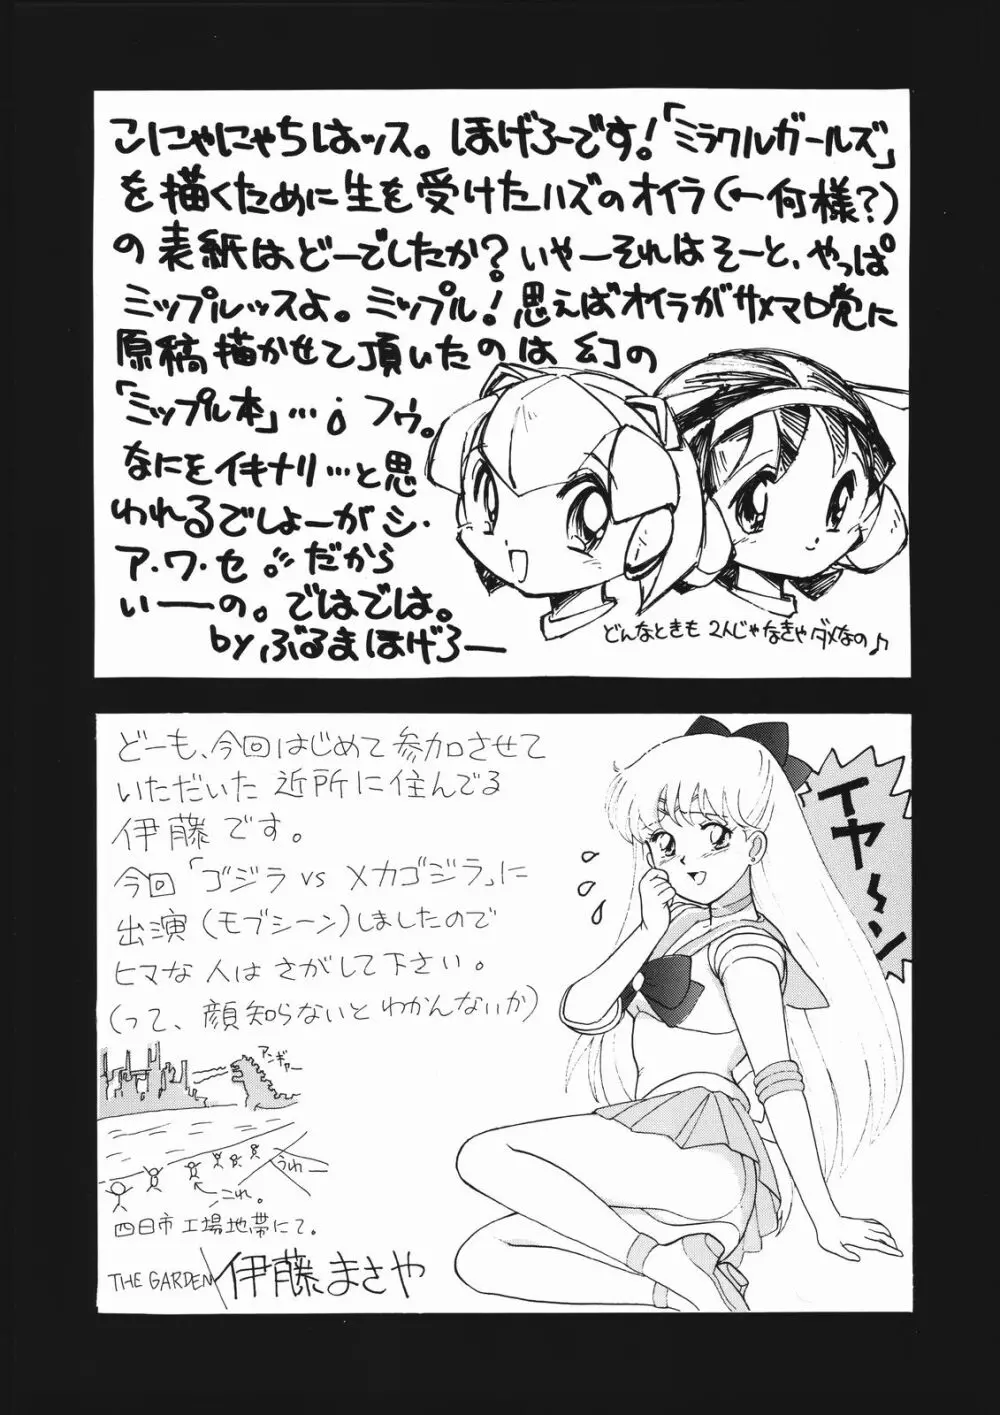 こにゃにゃちはッス。ほげろーです!「ミラクルガールズ」
を描くために生を受けたハズのオイラ(←何様?)
の表紙は、どーでしたか?いやーそれはそーと、やっぱ
ミップルッスよ。ミップル!思えばオイラがサメマロ党に
原稿描かせて頂いたのは幻の
「ミップル本」…。フゥ。
なにをイキナリ…と思
われるでしょーがシ・
ア・ワ・セ。だから
いーーの。ではでは。
by ぶるまほげろー
どんなときも 2人じゃなきゃダメなの♪
どーも、今回はじめて参加させて
いただいた近所に住んでる
伊藤です。
今回「ゴジラ vs メカゴジラ」に
出演(モブシーン)しましたので
ヒマな人はさがして下さい。
(って、顔知らないとわかんないか)
イヤ〜ン
アンギャー
うわー
←これ。
四日市工場地帯にて。
THE GARDEN/伊藤まさや